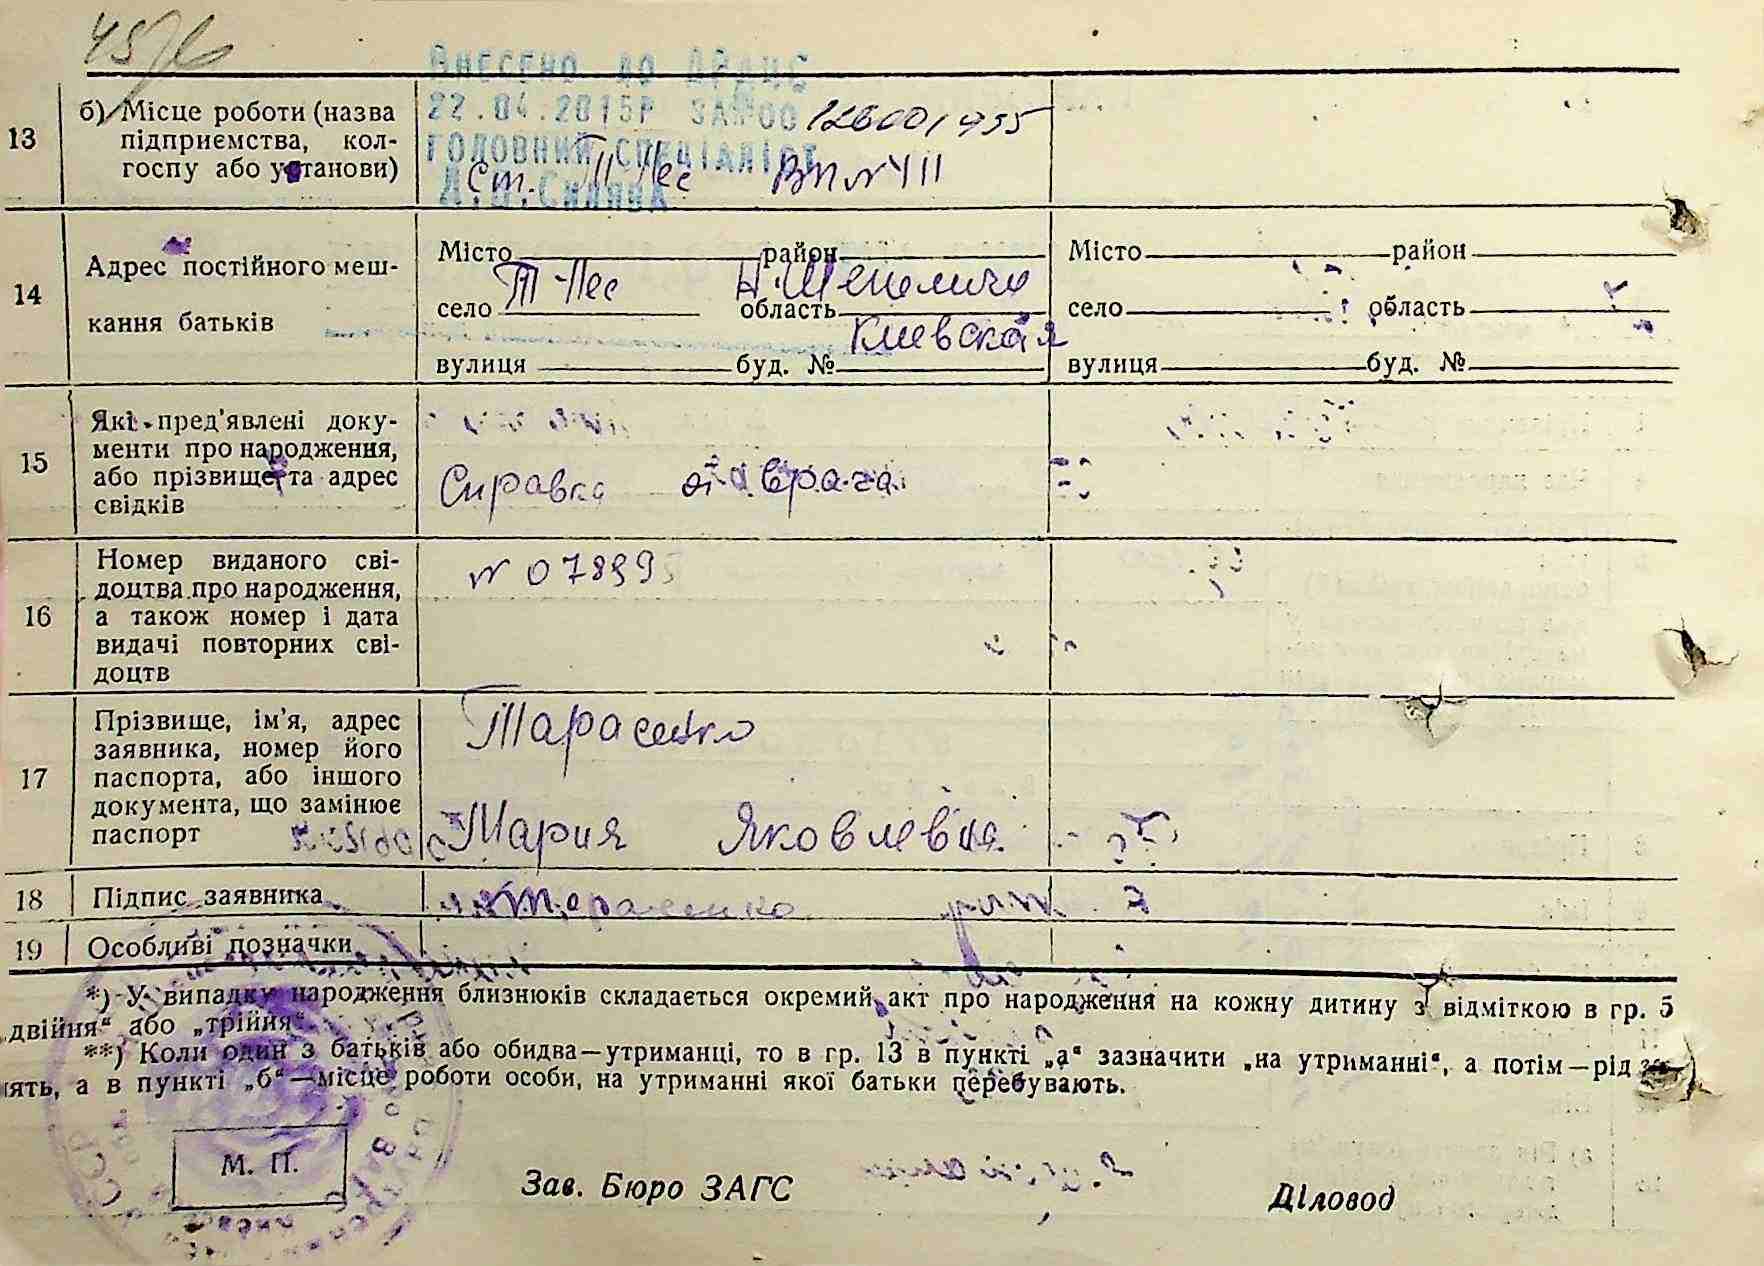 ВНЕСЕНО ДО ДРАЦС
22.04.2015Р ЗА №00 126001955
ГОЛОВНИЙ СПЕЦІАЛІСТ
13 б) Місце роботи (назва підприємства, кол-
госпу або установи)
Ст. Т Лес ВП №
14 Адрес постійного меш-
кання батьків
Місто район Місто район
село Т-Лес область Н.Шепеличи село область
Киевская
вулиця буд. № вулиця буд. №
15 Які пред'явлені доку-
менти про народження,
або прізвище та адрес
свідків
Справка от врача
16 Номер виданого сві-
доцтва про народження,
а також номер і дата
видачі повторних сві-
доцтв
№ 078995
17 Прізвище, ім'я, адрес
заявника, номер його
паспорта, або іншого
документа, що замінює
паспорт
Тарасенко
Мария Яковлевна
18 Підпис заявника Тарасенко
19 Особливі позначки
*) У випадку народження близнюків складається окремий акт про народження на кожну дитину з відміткою в гр. 5
„двійня“ або „трійня“.
**) Коли один з батьків або обидва—утриманці, то в гр. 13 в пункті „а“ зазначити „на утриманні“, а потім—рід за-
нять, а в пункті „б“—місце роботи особи, на утриманні якої батьки перебувають.
М. П.
Зав. Бюро ЗАГС Діловод